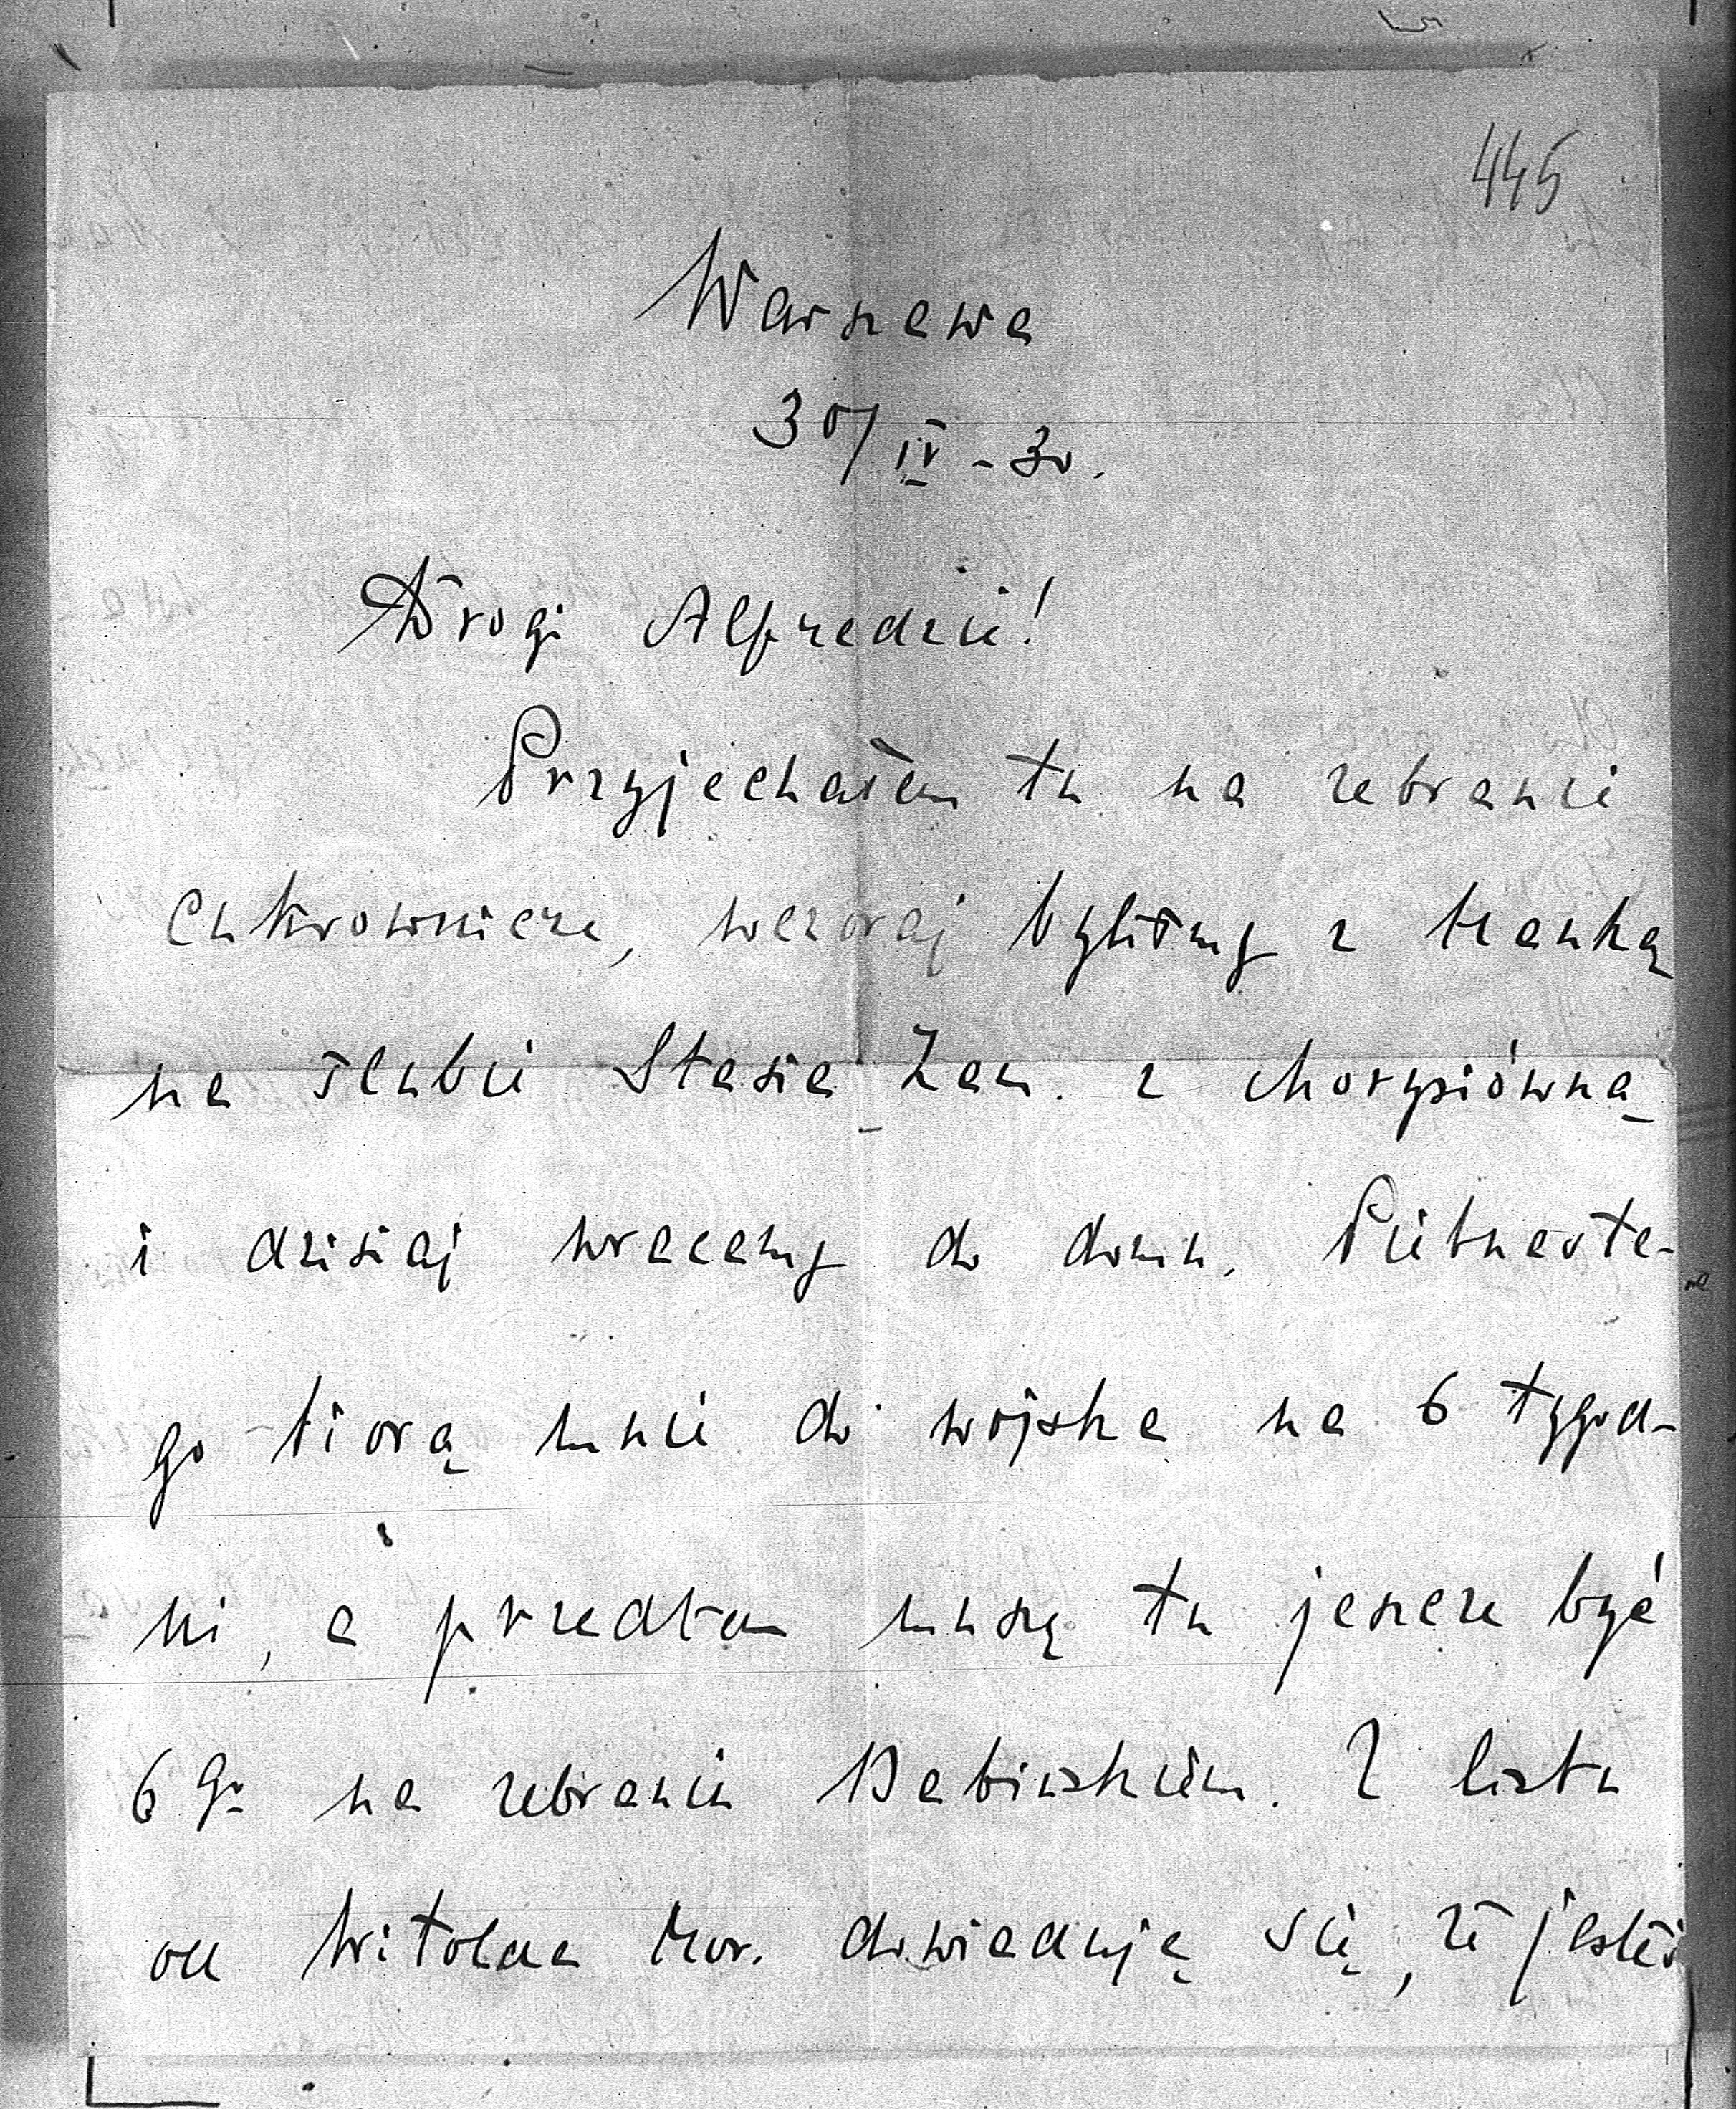 445
Warszawa
30/IV - 30.
Drogi Alfredzie!
Przyjechałem tu na zebranie
Cukrownicze, wczoraj byliśmy z Hanką
na ślubie Stasia Zam. z Morysiówną
i dzisiaj wracamy do domu. Piętnaste-
go biorą mnie do wojska na 6 tygod-
ni, a przedtem muszę tu jeszcze być
6 go na zebraniu Babińskiem. Z listu
od Witolda dowiaduję się, że jesteś